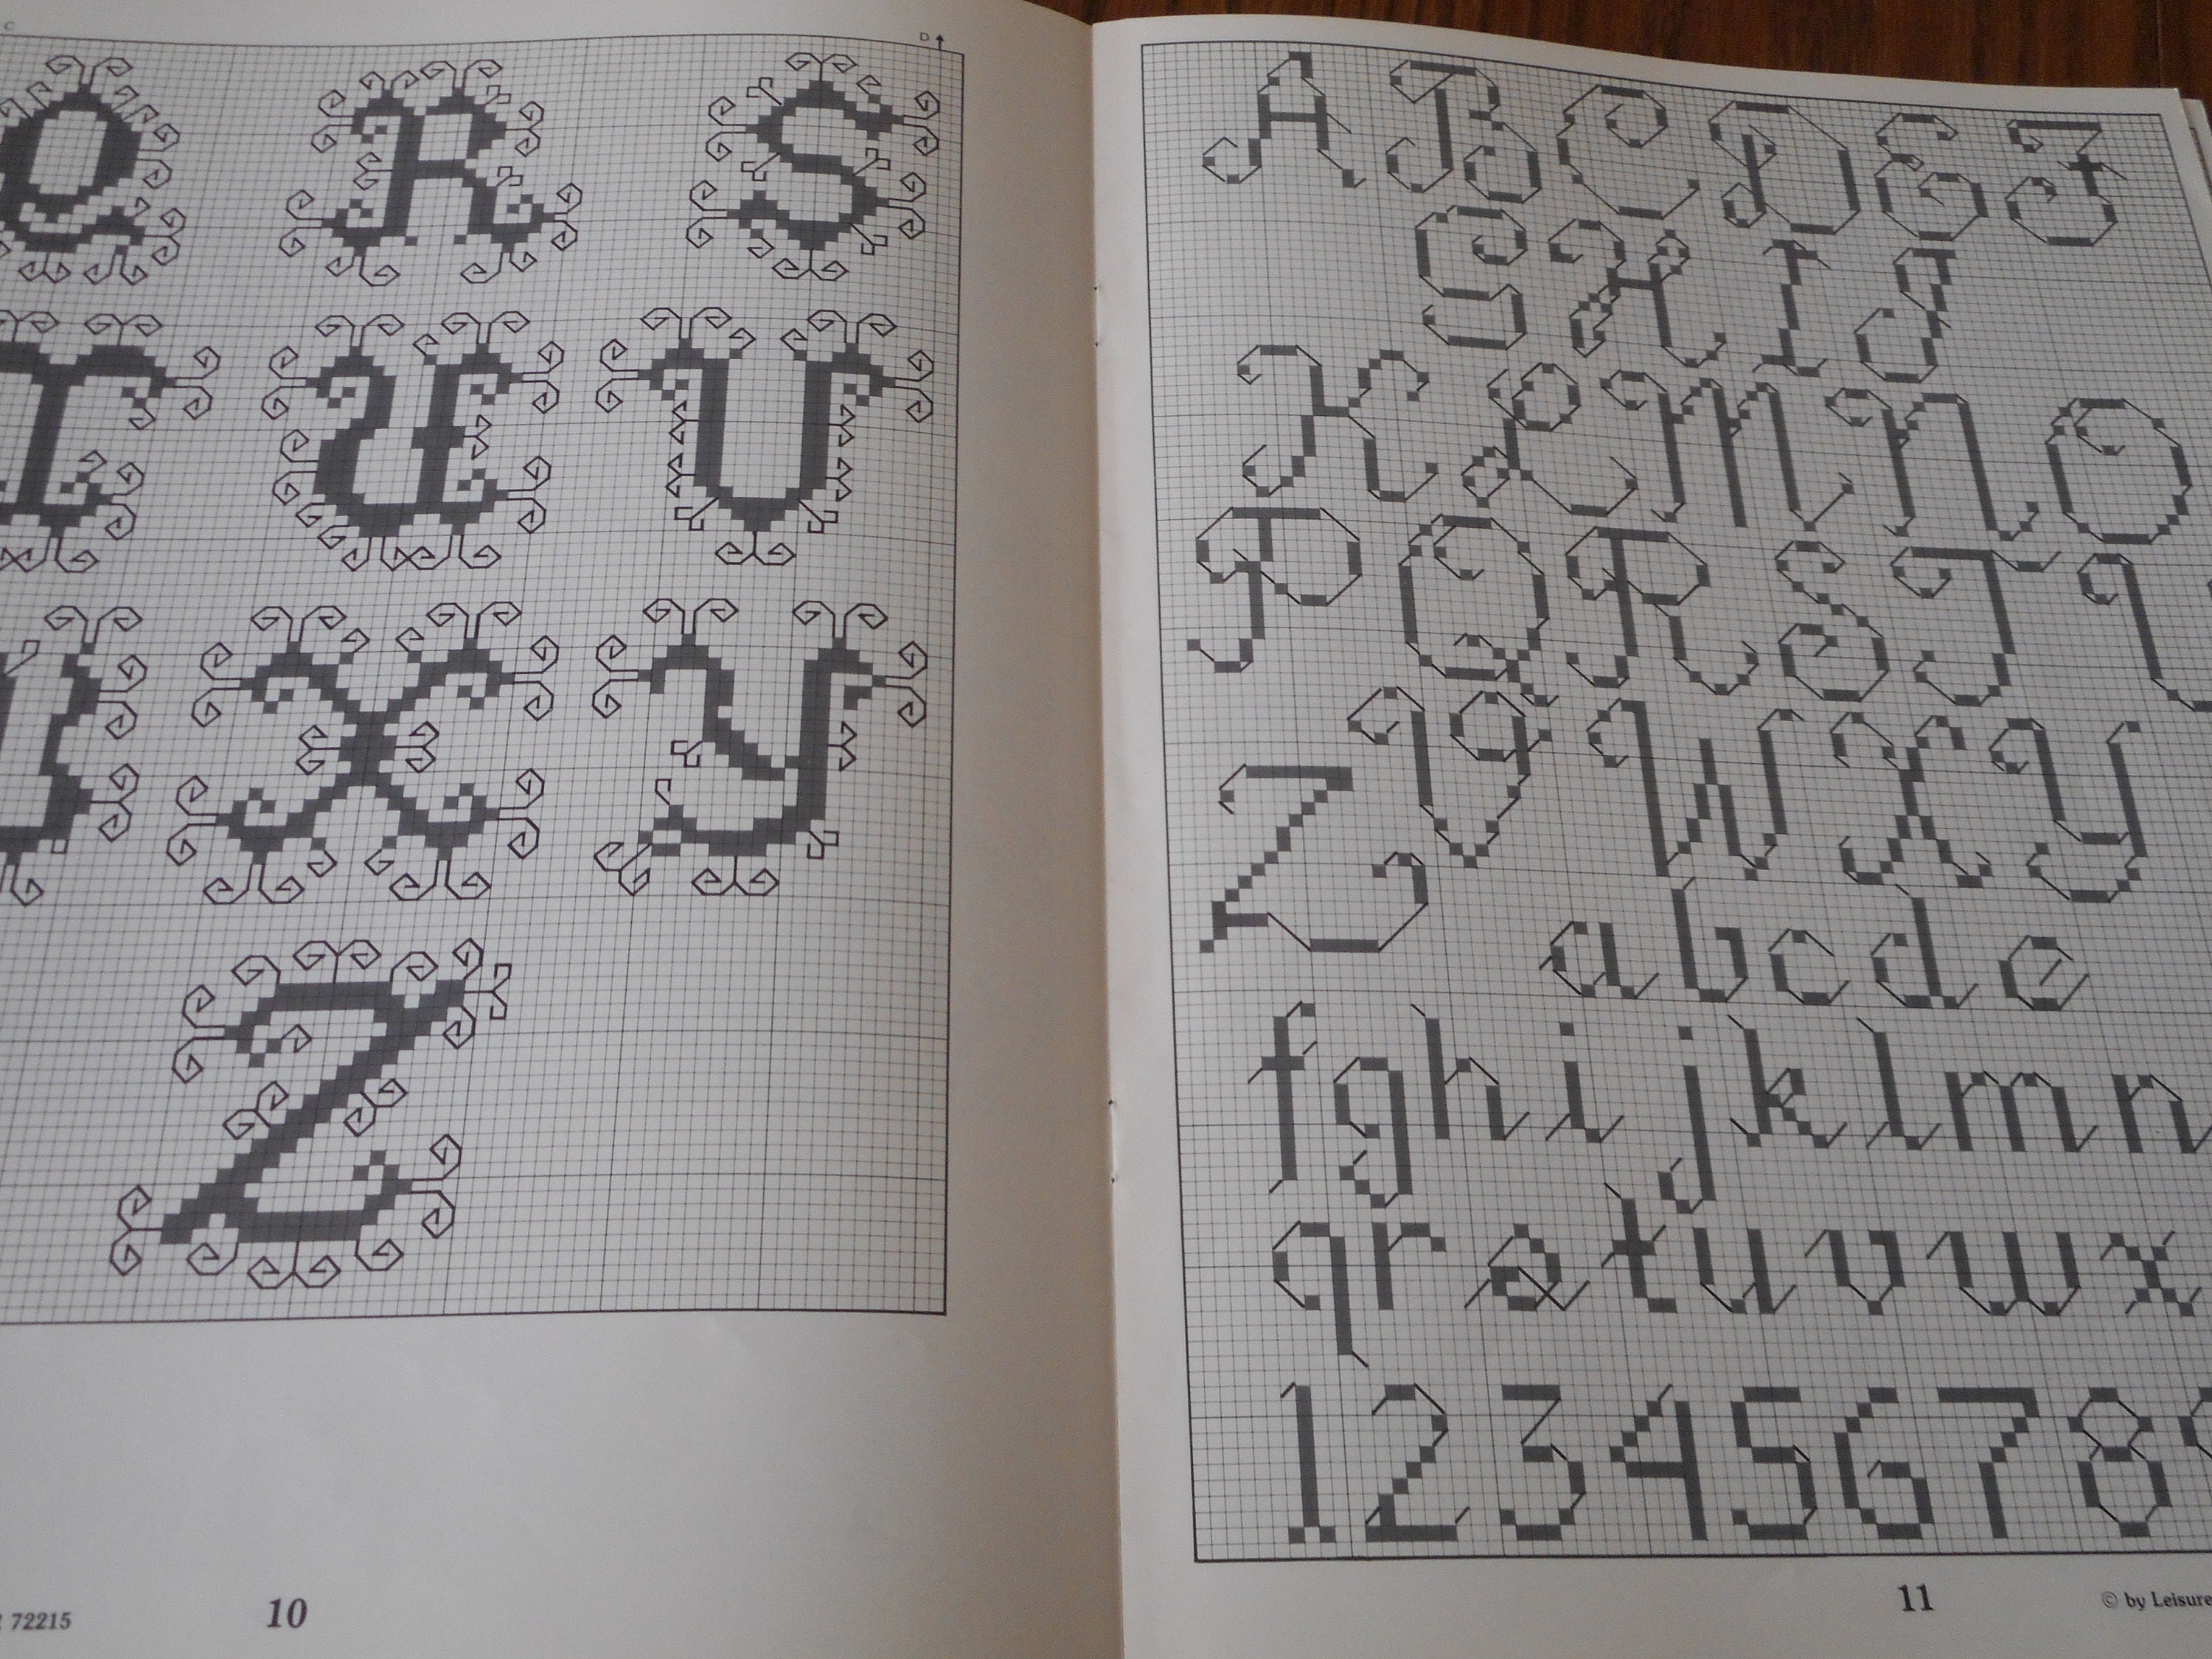 C D
Q R S
T U V
W X Y
Z
72215
10
A B C D E F
G H I J
K L M N O
P Q R S T U
Z V W X Y
a b c d e
f g h i j k l m n
q r s t u v w x
1 2 3 4 5 6 7 8
11
© by Leisure